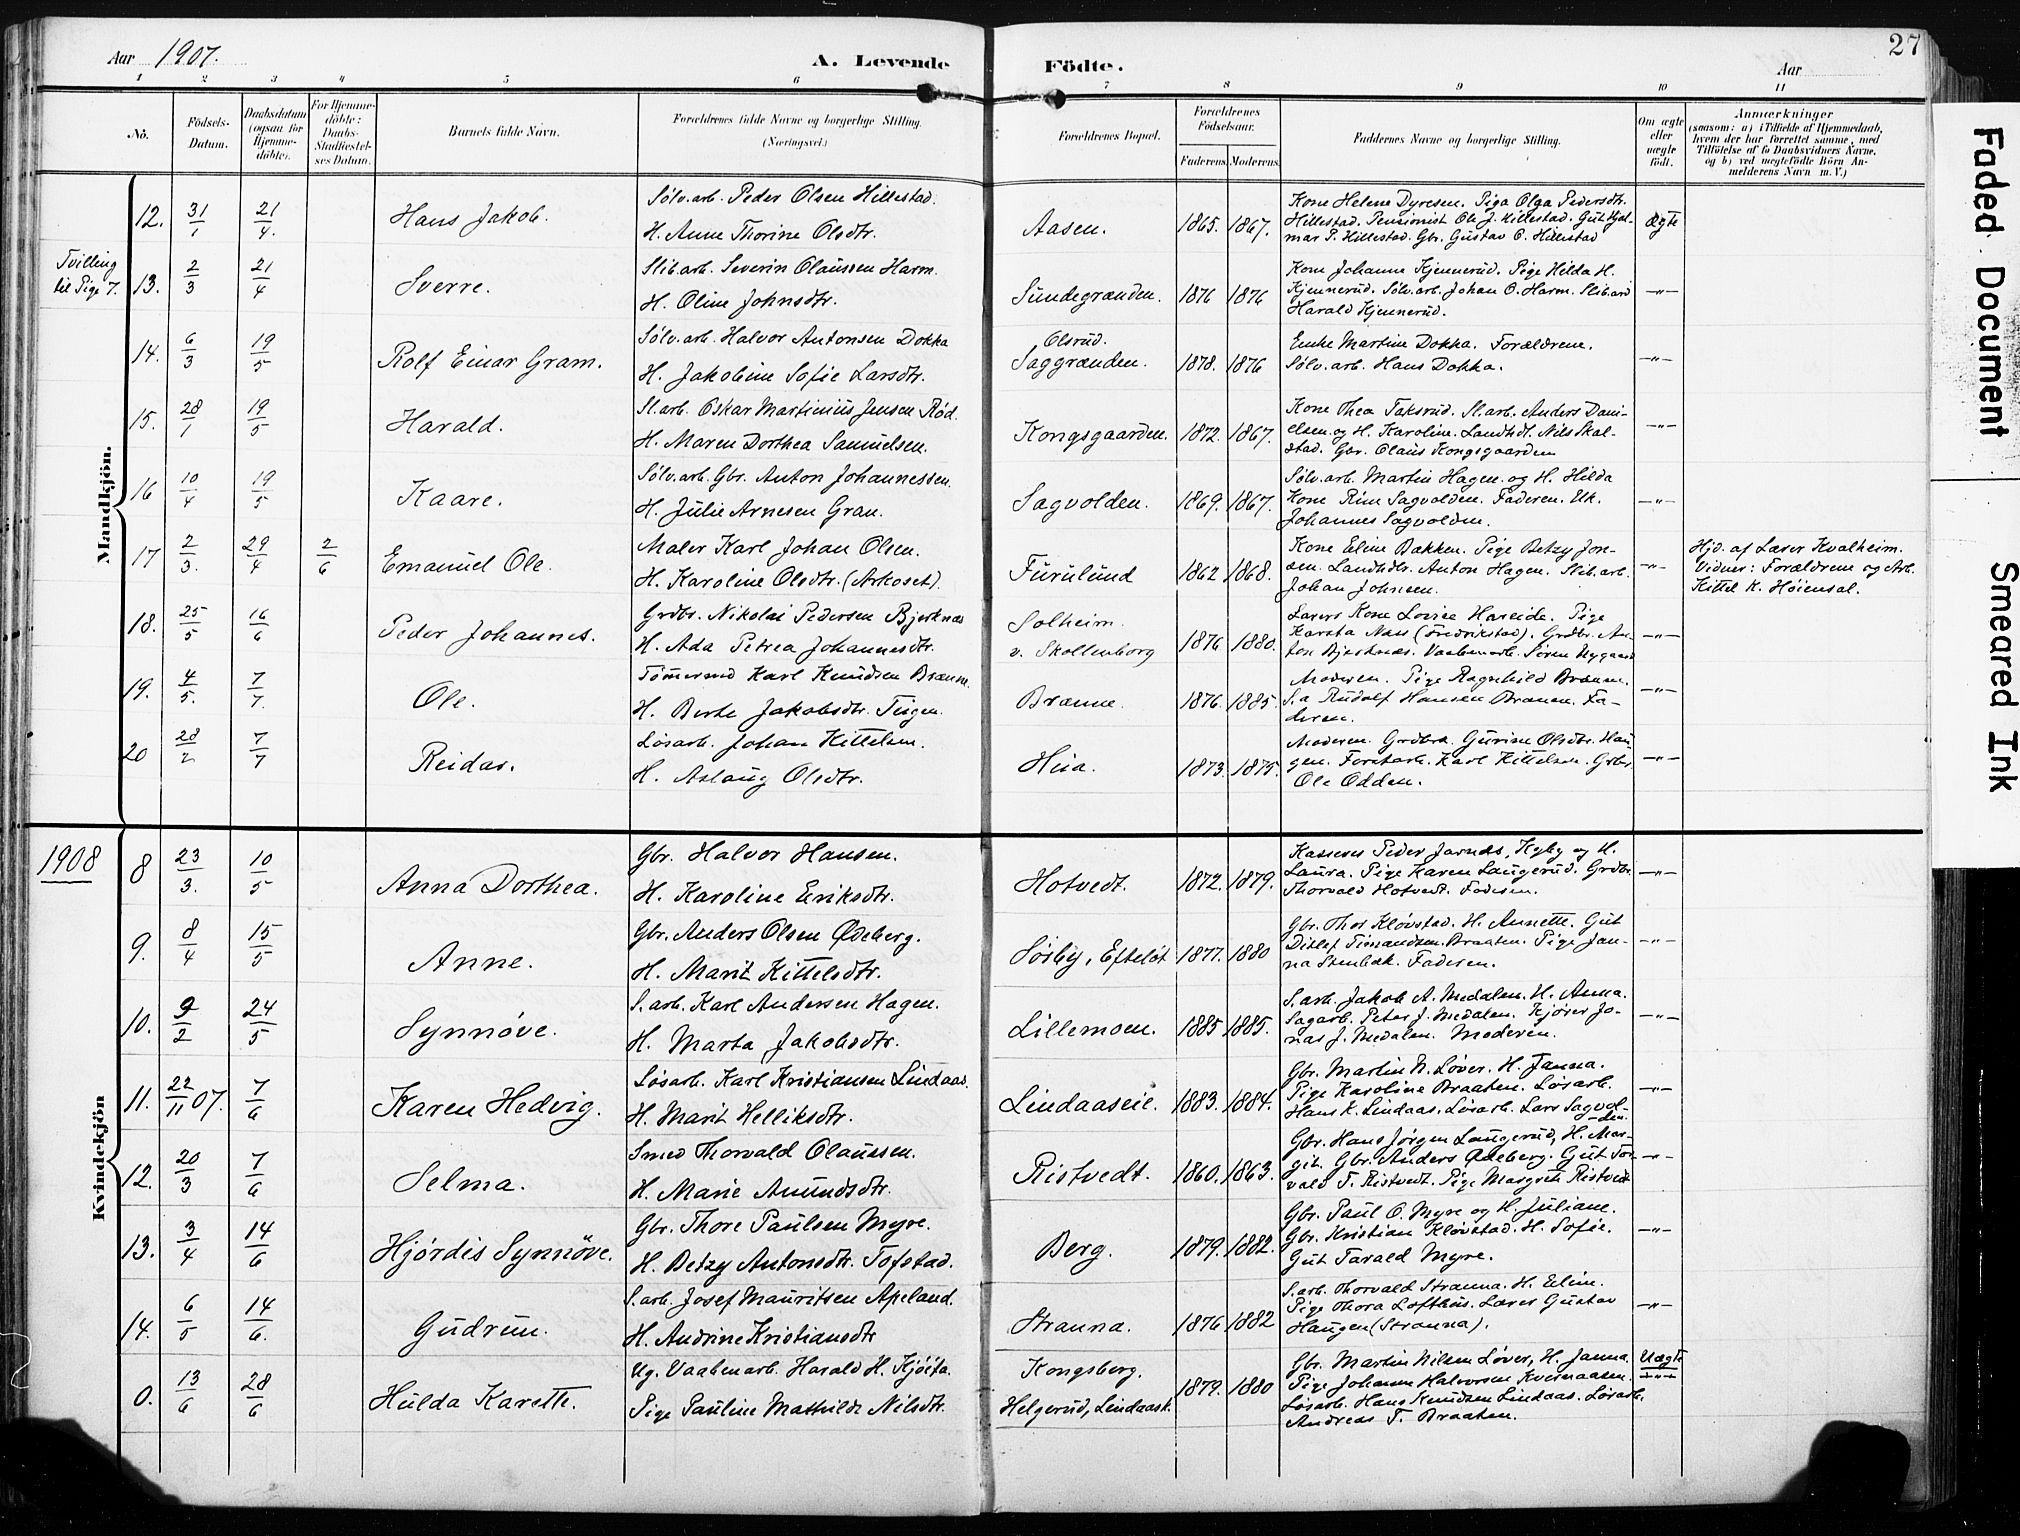 27
Aar 1907.
A. Levende Födte.
Aar
1 2 3 4 5 6 7 8 9 10 11
No.
Födsels-Datum.
Daabsdatum (ogsaa for Hjemmedöbte).
For Hjemmedöbte: Daabs-Stadfæstelses Datum.
Barnets fulde Navn.
Forældrenes fulde Navne og borgerlige Stilling. (Næringsvei.)
Forældrenes Bopæl.
Forældrenes Födselsaar.
Faderens. Moderens.
Faddernes Navne og borgerlige Stilling.
Om ægte eller uægte födt.
Anmærkninger
(saasom: a) i Tilfælde af Hjemmedaab,
hvem der har forrettet samme, med
Tilföielse af to Daabsvidners Navne,
og b) ved uægtefödte Börn An-
melderens Navn m. V.)
Mandkjön.
12. 31/1 21/4. Hans Jakob.
Sølv.arb. Peder Olsen Hillestad.
H. Anne Thorine Olsdtr.
Aasen. 1865. 1867.
Kone Helene Dyresen. Pige Olga Pedersdtr.
Hillestad. Pensionist Ole J. Hillestad. Gut Hjal-
mar P. Hillestad. Gbr. Gustav O. Hillestad
Ægte
Tvilling
til Pige 7.
13. 2/3 21/4 Sverre.
Slib.arb. Severin Olaussen Harm.
H. Oline Johnsdtr.
Sundegrænden. 1876 1876
Kone Johanne Kjennerud. Pige Hilda H.
Kjennerud. Sølv.arb. Johan O. Harm. Slib.arb
Harald Kjennerud.
—"—
14. 6/3 19/5 Rolf Einar Gram.
Sølv.arb. Halvor Antonsen Dokka
H. Jakobine Sofie Larsdtr.
Olsrud.
Saggrænden. 1878. 1876
Enke Martine Dokka. Forældrene.
Sølv.arb. Hans Dokka.
—"—
15. 28/1 19/5 Harald.
Sl.arb. Oskar Martinius Jensen Rød.
H. Maren Dorthea Samuelsen.
Kongsgaarden. 1872. 1867.
Kone Thea Taksrud. Sl.arb. Anders Dani-
elsen og H. Karoline. Landhdl. Nils Skal-
stad. Gbr. Olaus Kongsgaarden
—"—
16 10/4 19/5 Kaare.
Sølv.arb. Gbr. Anton Johannessen.
H. Julie Arnesen Gran.
Sagvolden. 1869. 1867.
Sølv.arb. Martin Hagen og H. Hilda
Kone Rine Sagvolden. Faderen. Uk.
Johannes Sagvolden.
—"—
17 2/3. 29/4 2/6 Emanuel Ole.
Maler Karl Johan Olsen.
H. Karoline Olsdtr. (Arkoset).
Furulund 1862 1868.
Kone Eline Bakken. Pige Betzy Jon-
sen. Landhdlr. Anton Hagen. Slib.arb.
Johan Johnsen.
—"—
Hjd. af Lærer Kvalheim.
Vidner: Forældrene og Arb.
Kittel K. Høiensal.
18. 25/5 16/6 Peder Johannes.
Grdbr. Nikolai Pedersen Bjerknæs
H. Ada Petrea Johannesdtr.
Solheim.
v. Skollenborg 1876 1880.
Lærers Kone Lovise Hareide. Pige
Karsta Næss (Fredrikstad). Grdbr. An-
ton Bjerknæs. Vaabenarb. Søren Nygaard
—"—
19. 4/5. 7/7. Ole.
Tømmermd Karl Knudsen Brænne.
H. Berte Jakobsdtr. Teigen.
Brænne. 1876. 1885.
Moderen. Pige Ragnhild Brænne.
S.a Rudolf Hansen Brænne. Fa-
deren.
—"—
20 28/2 7/7 Reidar.
Løsarb. Johan Kittelsen.
H. Aslaug Olsdtr.
Hiia. 1873. 1875.
Moderen. Grdbrk. Gurine Olsdtr. Hau-
gen. Forstarb. Karl Kittelsen. Grbr.
Ole Odden.
—"—
1908
Kvindekjön
8 23/3. 10/5 Anna Dorthea.
Gbr. Halvor Hansen.
H. Karoline Eriksdtr.
Hotvedt. 1872. 1879.
Kasserer Peder Jarnæs, Kgbg og H.
Laura. Pige Karen Laugerud. Grdbr.
Thorvald Hotvedt. Faderen.
—"—
9. 8/4 15/5 Anne.
Gbr. Anders Olsen Ødeberg.
H. Marit Kittelsdtr.
Søsby, Efteløt 1877. 1880
Gbr. Thor Kløvstad. H. Annette. Gut
Ditlef Timandsen Braaten. Pige Jan-
na Stenbæk. Faderen.
—"—
10. 9/2 24/5 Synnøve.
S.arb. Karl Andersen Hagen.
H. Marta Jakobsdtr.
Lillemoen. 1885 1885.
S.arb. Jakob A. Medalen. H. Anna.
Sagarb. Peter J. Medalen. Kjører Jo-
nas J. Medalen. Moderen.
—"—
11. 22/11 07. 7/6 Karen Hedvig.
Løsarb. Karl Kristiansen Lindaas.
H. Marit Helliksdtr.
Lindaaseie. 1883. 1884.
Gbr. Martin N. Løver. H. Janna.
Pige Karoline Braaten. Løsarb.
Hans K. Lindaas. Løsarb. Lars Sagvol-
den.
—"—
12. 20/3 7/6 Selma.
Smed Thorvald Olaussen.
H. Marie Amundsdtr.
Ristvedt. 1860. 1863.
Gbr. Hans Jørgen Laugerud, H. Mar-
git. Gbr. Anders Ødeberg. Gut Tor-
vald T. Ristvedt. Pige Margrete Ristvedt
—"—
13. 3/4 14/6 Hjørdis Synnøve.
Gbr. Thore Paulsen Myre.
H. Betzy Antonsdtr. Tofstad.
Berg. 1879. 1882.
Gbr. Paul O. Myre og H. Juliane.
Gbr. Kristian Kløvstad. H. Sofie.
Gut Tarald Myre.
—"—
14. 6/5 14/6. Gudrun.
S.arb. Josef Mauritsen Apeland.
H. Andrine Kristiansdtr
Stranna. 1876 1882
S.arb. Thorvald Stranna. H. Eline.
Pige Thora Lofthus. Lærer Gustav
Haugen (Stranna).
—"—
0. 13/6 28/6 Hulda Karette.
Ug. Vaabenarb. Harald H. Kjøita.
Pige Pauline Mathilde Nilsdtr.
Kongsberg.
Helgerud, Lindaask. 1879. 1880
Gbr. Martin Nilsen Løver, H. Janna.
Pige Johanne Halvorsen Kvernaasen.
Løsarb. Hans Knudsen Lindaas. Løsarb.
Andreas T. Braaten.
Uægte
—"—
Faded Document
Smeared Ink